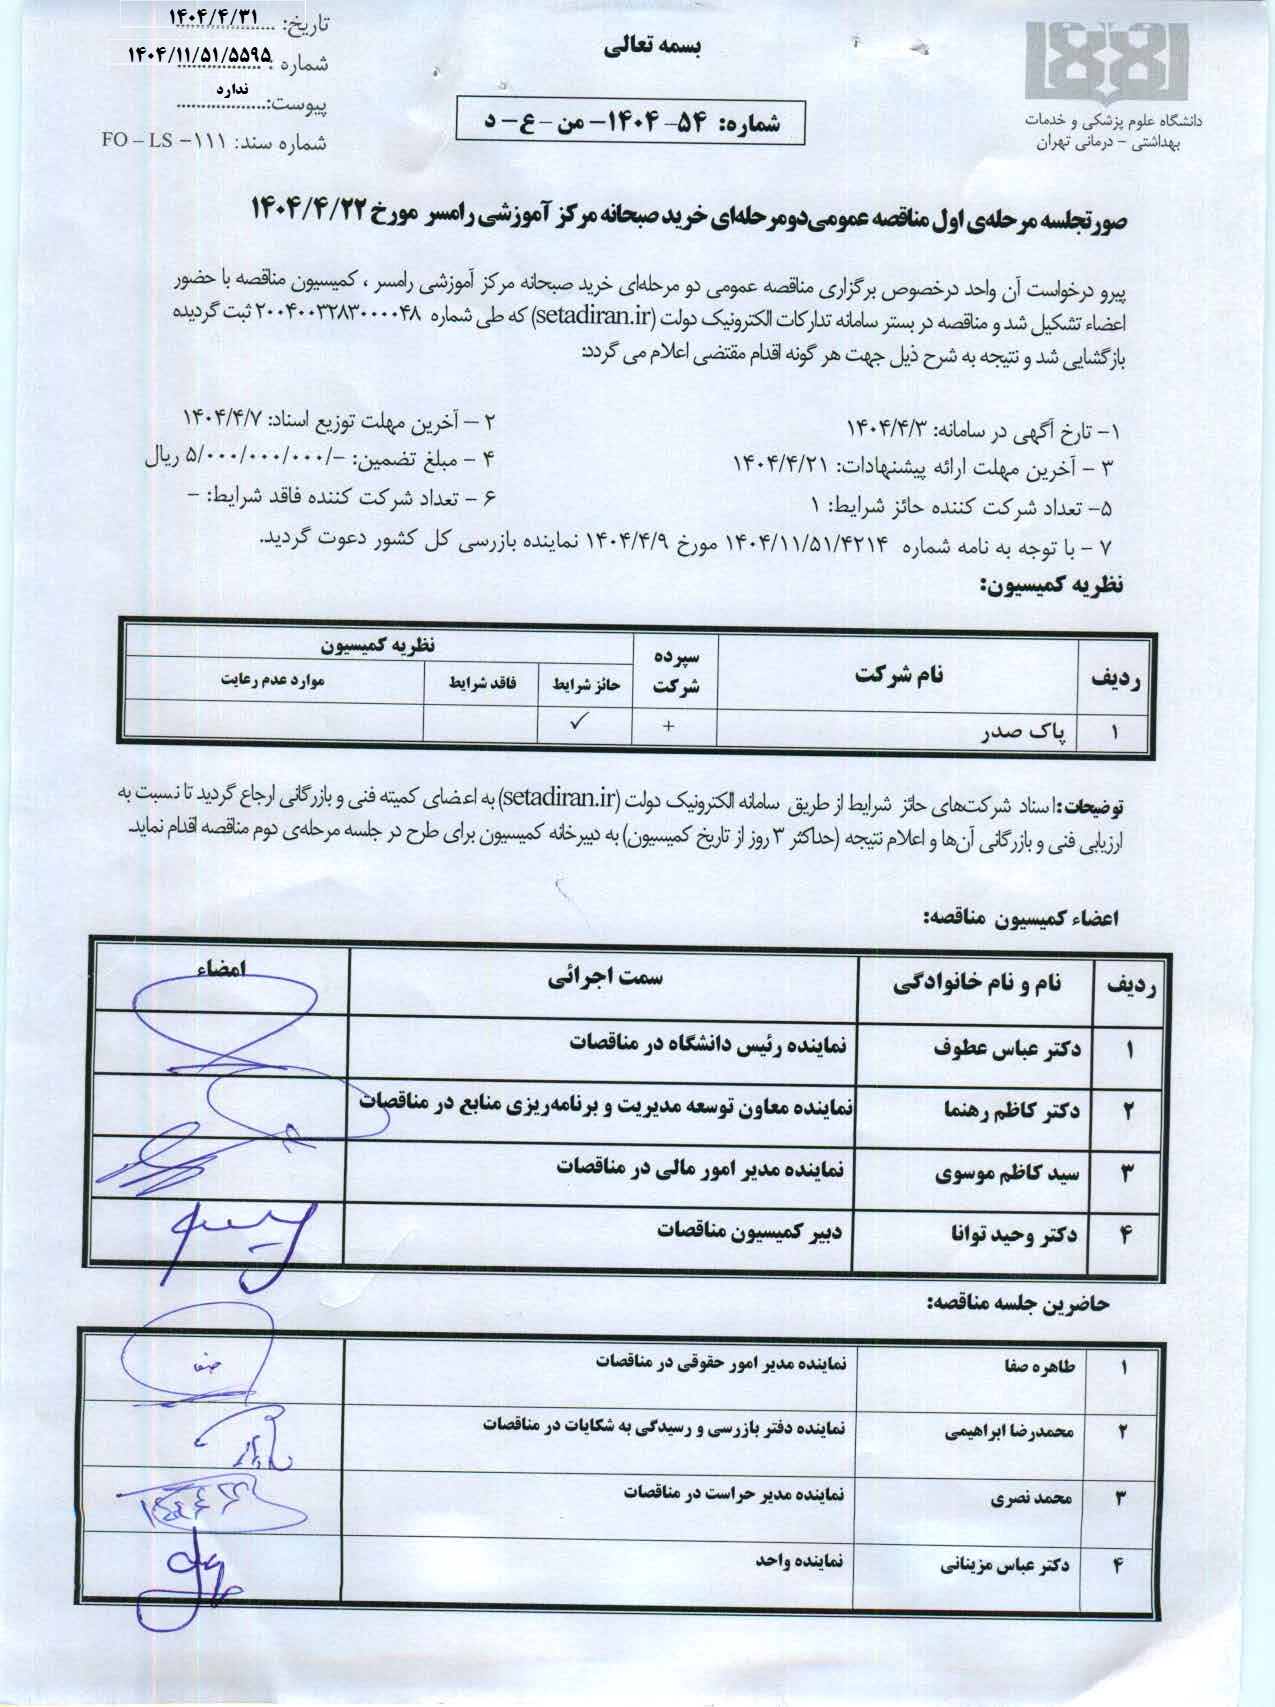 بسمه تعالی
تاریخ: ۱۴۰۴/۴/۳۱
شماره: ۱۴۰۴/۱۱/۵۱/۵۵۹۵
پیوست: ندارد
شماره سند: FO – LS – ۱۱۱
دانشگاه علوم پزشکی و خدمات
بهداشتی – درمانی تهران
شماره: ۵۴– ۱۴۰۴– من – ع – د
صورتجلسه مرحله‌ی اول مناقصه عمومی دومرحله‌ای خرید صبحانه مرکز آموزشی رامسر مورخ ۱۴۰۴/۴/۲۲
پیرو درخواست آن واحد درخصوص برگزاری مناقصه عمومی دو مرحله‌ای خرید صبحانه مرکز آموزشی رامسر ، کمیسیون مناقصه با حضور
اعضاء تشکیل شد و مناقصه در بستر سامانه تدارکات الکترونیک دولت (setadiran.ir) که طی شماره ۲۰۰۴۰۰۳۲۸۳۰۰۰۰۴۸ ثبت گردیده
بازگشایی شد و نتیجه به شرح ذیل جهت هر گونه اقدام مقتضی اعلام می گردد:
۱– تارخ آگهی در سامانه: ۱۴۰۴/۴/۳
۲ – آخرین مهلت توزیع اسناد: ۱۴۰۴/۴/۷
۳ – آخرین مهلت ارائه پیشنهادات: ۱۴۰۴/۴/۲۱
۴ – مبلغ تضمین: –/۵/۰۰۰/۰۰۰/۰۰۰ ریال
۵– تعداد شرکت کننده حائز شرایط: ۱
۶ – تعداد شرکت کننده فاقد شرایط: –
۷ – با توجه به نامه شماره ۱۴۰۴/۱۱/۵۱/۴۲۱۴ مورخ ۱۴۰۴/۴/۹ نماینده بازرسی کل کشور دعوت گردید.
نظریه کمیسیون:
ردیف نام شرکت سپرده شرکت نظریه کمیسیون
حائز شرایط فاقد شرایط موارد عدم رعایت
۱ پاک صدر + ✓
توضیحات: اسناد شرکت‌های حائز شرایط از طریق سامانه الکترونیک دولت (setadiran.ir) به اعضای کمیته فنی و بازرگانی ارجاع گردید تا نسبت به
ارزیابی فنی و بازرگانی آن‌ها و اعلام نتیجه (حداکثر ۳ روز از تاریخ کمیسیون) به دبیرخانه کمیسیون برای طرح در جلسه مرحله‌ی دوم مناقصه اقدام نماید.
اعضاء کمیسیون مناقصه:
ردیف نام و نام خانوادگی سمت اجرائی امضاء
۱ دکتر عباس عطوف نماینده رئیس دانشگاه در مناقصات
۲ دکتر کاظم رهنما نماینده معاون توسعه مدیریت و برنامه‌ریزی منابع در مناقصات
۳ سید کاظم موسوی نماینده مدیر امور مالی در مناقصات
۴ دکتر وحید توانا دبیر کمیسیون مناقصات
حاضرین جلسه مناقصه:
۱ طاهره صفا نماینده مدیر امور حقوقی در مناقصات
۲ محمدرضا ابراهیمی نماینده دفتر بازرسی و رسیدگی به شکایات در مناقصات
۳ محمد نصری نماینده مدیر حراست در مناقصات
۴ دکتر عباس مزینانی نماینده واحد